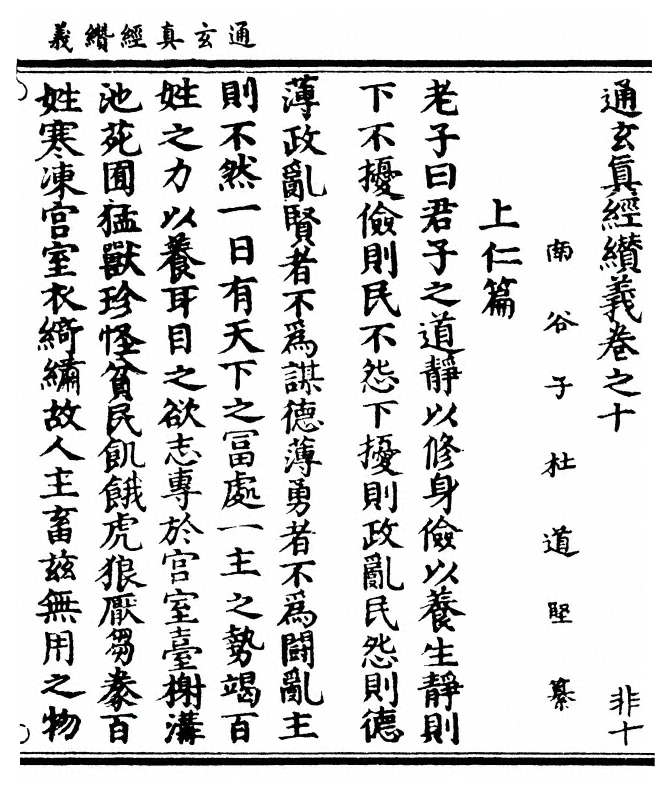 通玄真經纘義
通玄真經纘義卷之十
非十
南谷子杜道堅纂
上仁篇
老子曰君子之道靜以修身儉以養生靜則
下不擾儉則民不怨下擾則政亂民怨則德
薄政亂賢者不為謀德薄勇者不為鬪亂主
則不然一日有天下之冨處一主之勢竭百
姓之力以養耳目之欲志專於宫室臺榭溝
池苑囿猛獸珍怪貧民飢餓虎狼厭芻豢百
姓寒凍宫室衣綺繡故人主畜兹無用之物